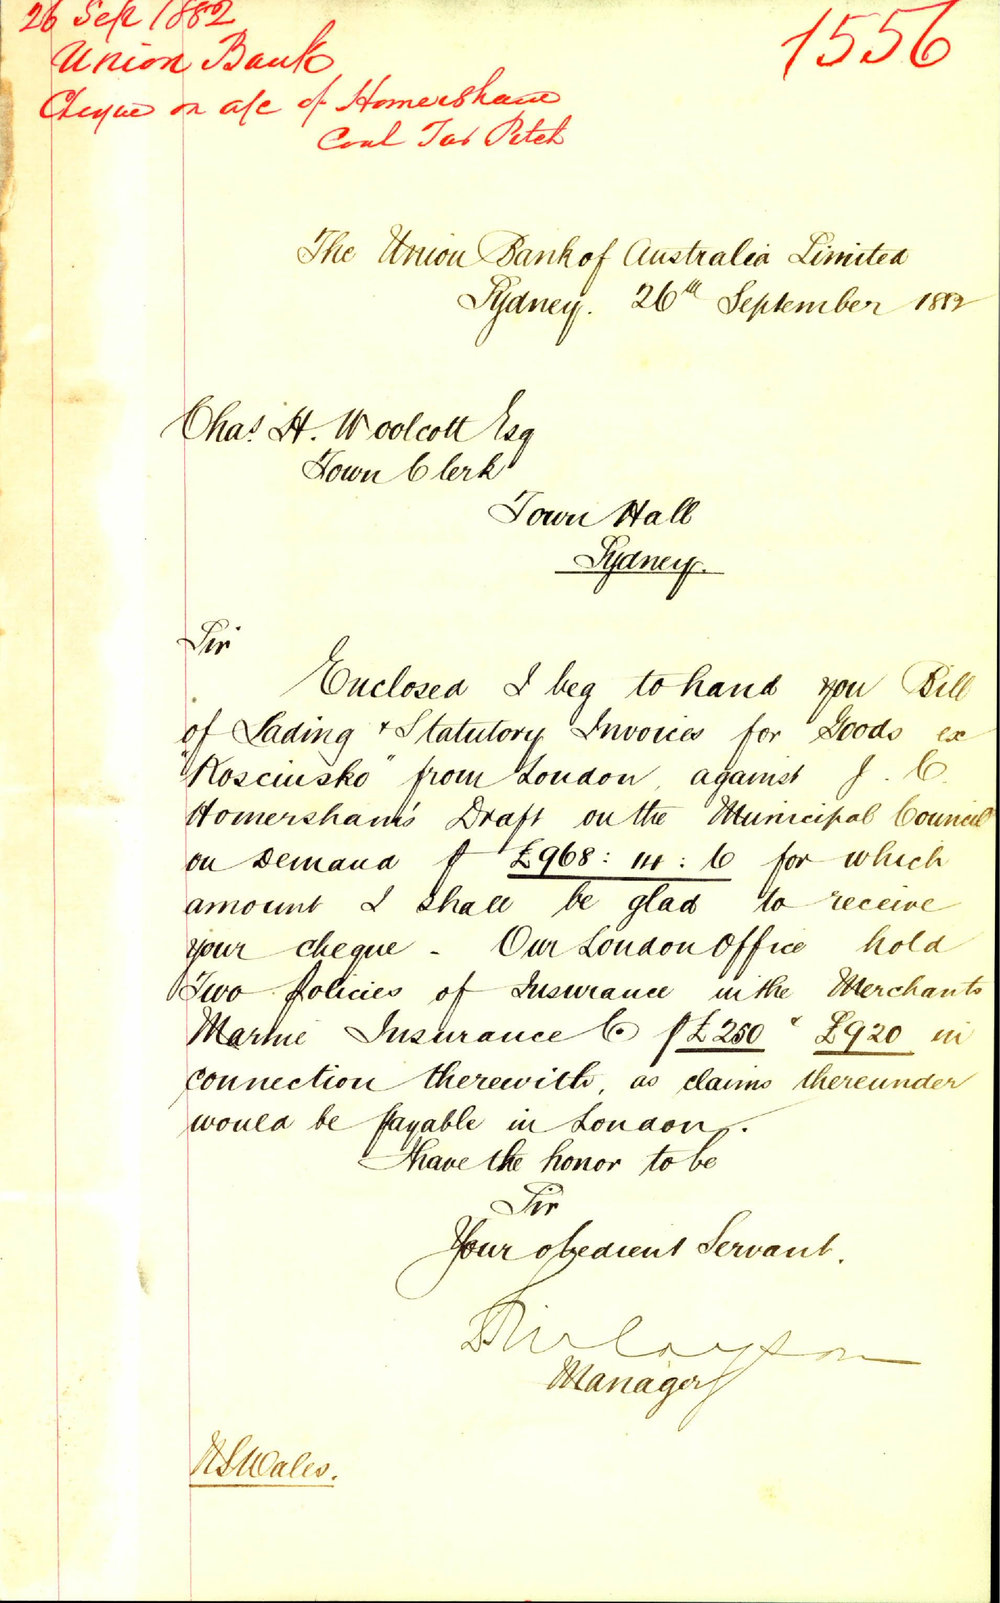 26 Sep 1882
1556
Union Bank
Cheque on a/c of Homersham
Coal Tar Pitch
The Union Bank of Australia Limited
Sydney. 26th September 1882
Chas. H. Woolcott Esq
Town Clerk
Town Hall
Sydney.
Sir
Enclosed I beg to hand you Bill
of Lading & Statutory Invoices for Goods ex
"Kosciusko" from London, against J. C.
Homersham's Draft on the Municipal Council
on Demand for £968:14:6 for which
amount I shall be glad to receive
your cheque - Our London Office hold
Two policies of Insurance in the Merchants
Marine Insurance Co for £250 & £920 in
connection therewith, as claims thereunder
would be payable in London.
I have the honor to be
Sir
Your obedient Servant.
Manager
NSWales.